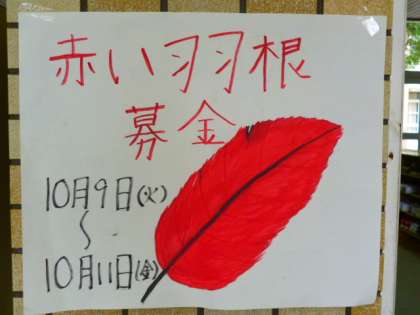 赤い羽根
募金
10月9日(火)
〜
10月11日(金)